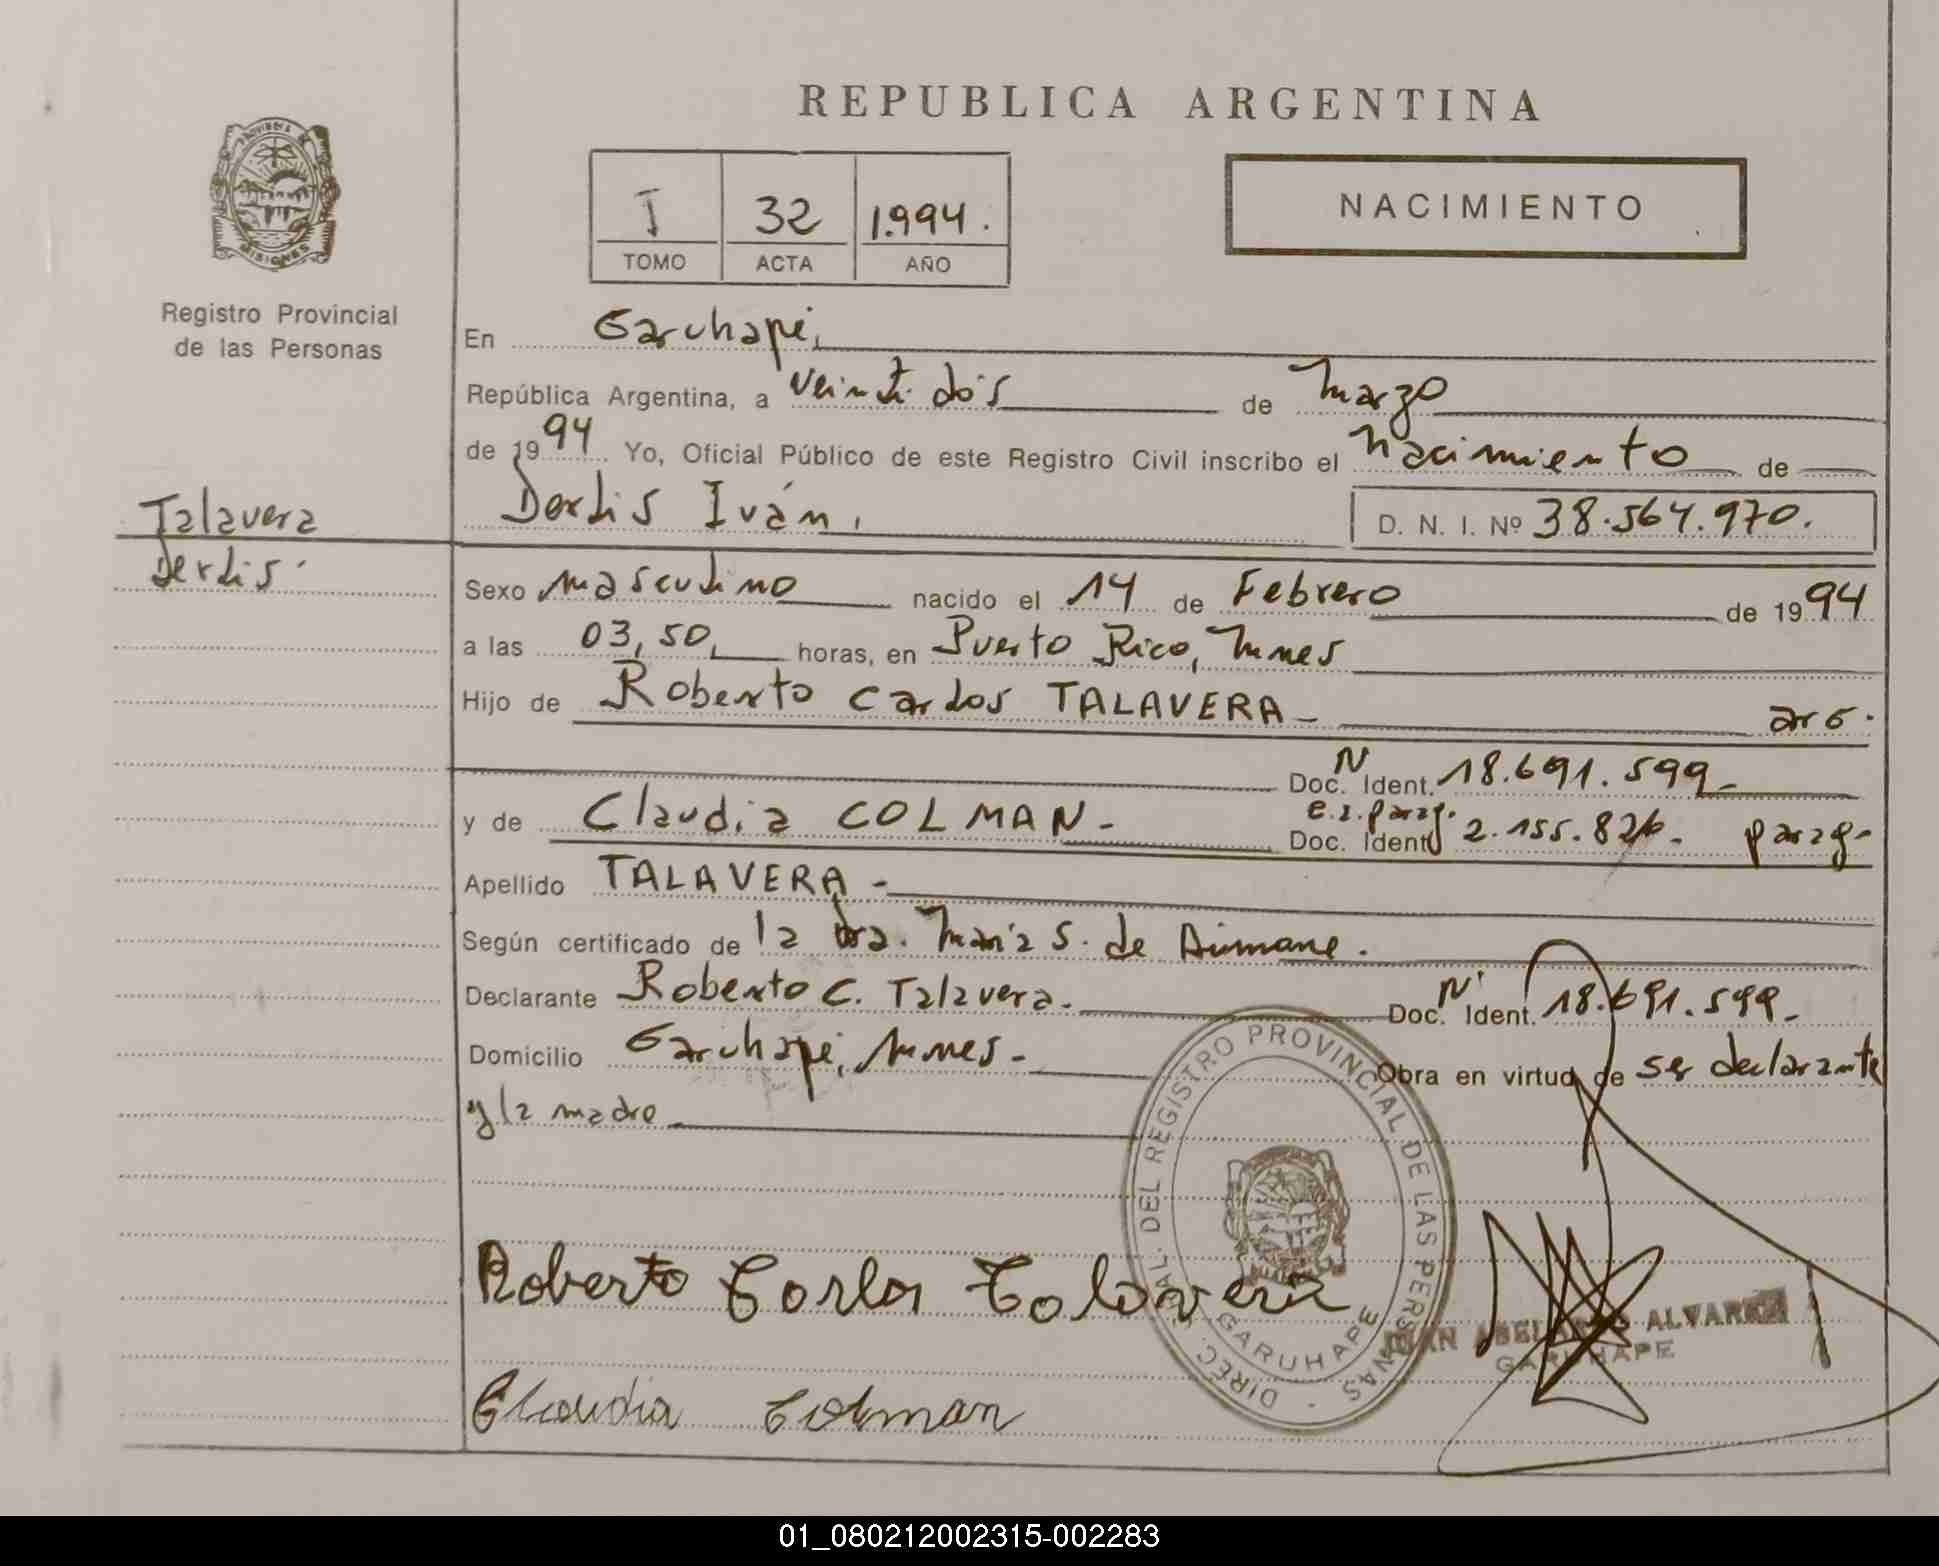 REPUBLICA ARGENTINA
PROVINCIA DE MISIONES
Registro Provincial
de las Personas
I 32 1.994.
TOMO ACTA AÑO
NACIMIENTO
En Garuhapé,
República Argentina, a veinti dós de Marzo
de 1994 Yo, Oficial Público de este Registro Civil inscribo el Nacimiento de
Talavera
Derlis
Derlis Iván,
D. N. I. Nº 38.564.970.
Sexo masculino nacido el 14 de Febrero de 1994
a las 03,50, horas, en Puerto Rico, Mnes
Hijo de Roberto Carlos TALAVERA - arg.
Doc. Ident. N 18.691.599-
y de Claudia COLMAN - Doc. Ident. 2.155.826- parag-
Apellido TALAVERA -
Según certificado de la Dra. María S. de
Declarante Roberto C. Talavera. Doc. Ident. N 18.691.599-
Domicilio Garuhapé, Mnes - Obra en virtud de ser declarante
y la madre
DIREC. GRAL. DEL REGISTRO PROVINCIAL DE LAS PERSONAS
GARUHAPE
Roberto Carlos Talavera
ALVAREZ
GARUHAPE
Claudia Colman
01_080212002315-002283